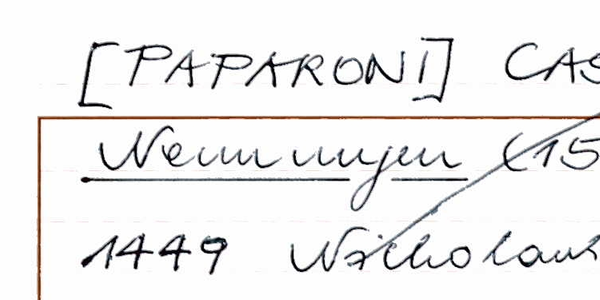 [PAPARONI] CAS
Nennungen (15
1449 Nicholaus